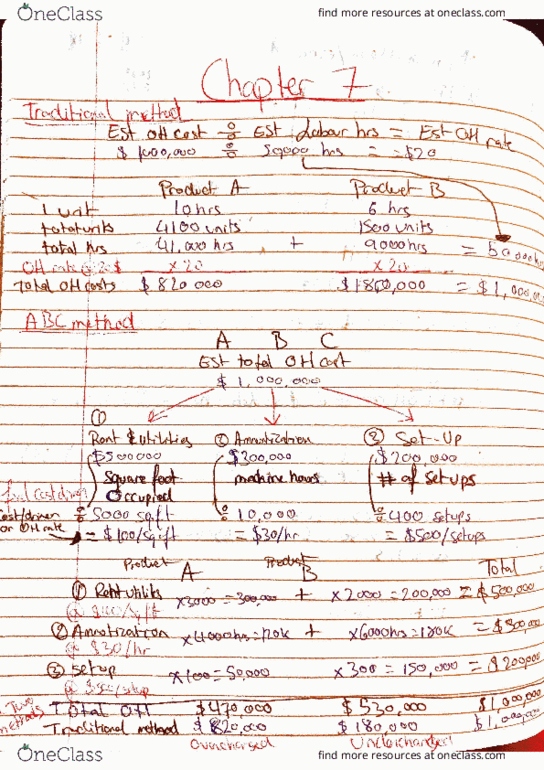 OneClass
find more resources at oneclass.com
Chapter 7
Traditional method
Est OH cost ÷ Est Labour hrs = Est OH rate
$1000,000 ÷ 50,000 hrs = $20
Product A Product B
1 unit 10 hrs 6 hrs
total units 4100 units 1500 units
total hrs 41,000 hrs + 9000 hrs = 50000 hrs
OH rate @ 20$ x 20 x 20
Total OH costs $820 000 $180,000 = $1,000,00
ABC method
A B C
Est total OH cost
$1,000,000
① Rent & utilities ② Amortization ③ Set-Up
$500000 $300,000 $200 000
Square foot Occupied machine hours # of Setups
÷ 5000 sq.ft ÷ 10,000 ÷ 400 setups
cost/driver or OH rate = $100/sq.ft = $30/hr = $500/setups
Product A Product B Total
① Rent utilits x3000 = 300,000 + x2000 = 200,000 = $500,000
@ $100/sq/ft
② Amortization x4000hrs = 120K + x6000hrs = 180K = $300,000
@ $30/hr
③ Setup x100 = 50,000 x300 = 150,000 = $200000
@ $500/setup
Two methods
Total OH $470,000 $530,000 $1,000,000
Traditional method $820,000 $180,000 $1,000,000
Overcharged Undercharged
OneClass
find more resources at oneclass.com